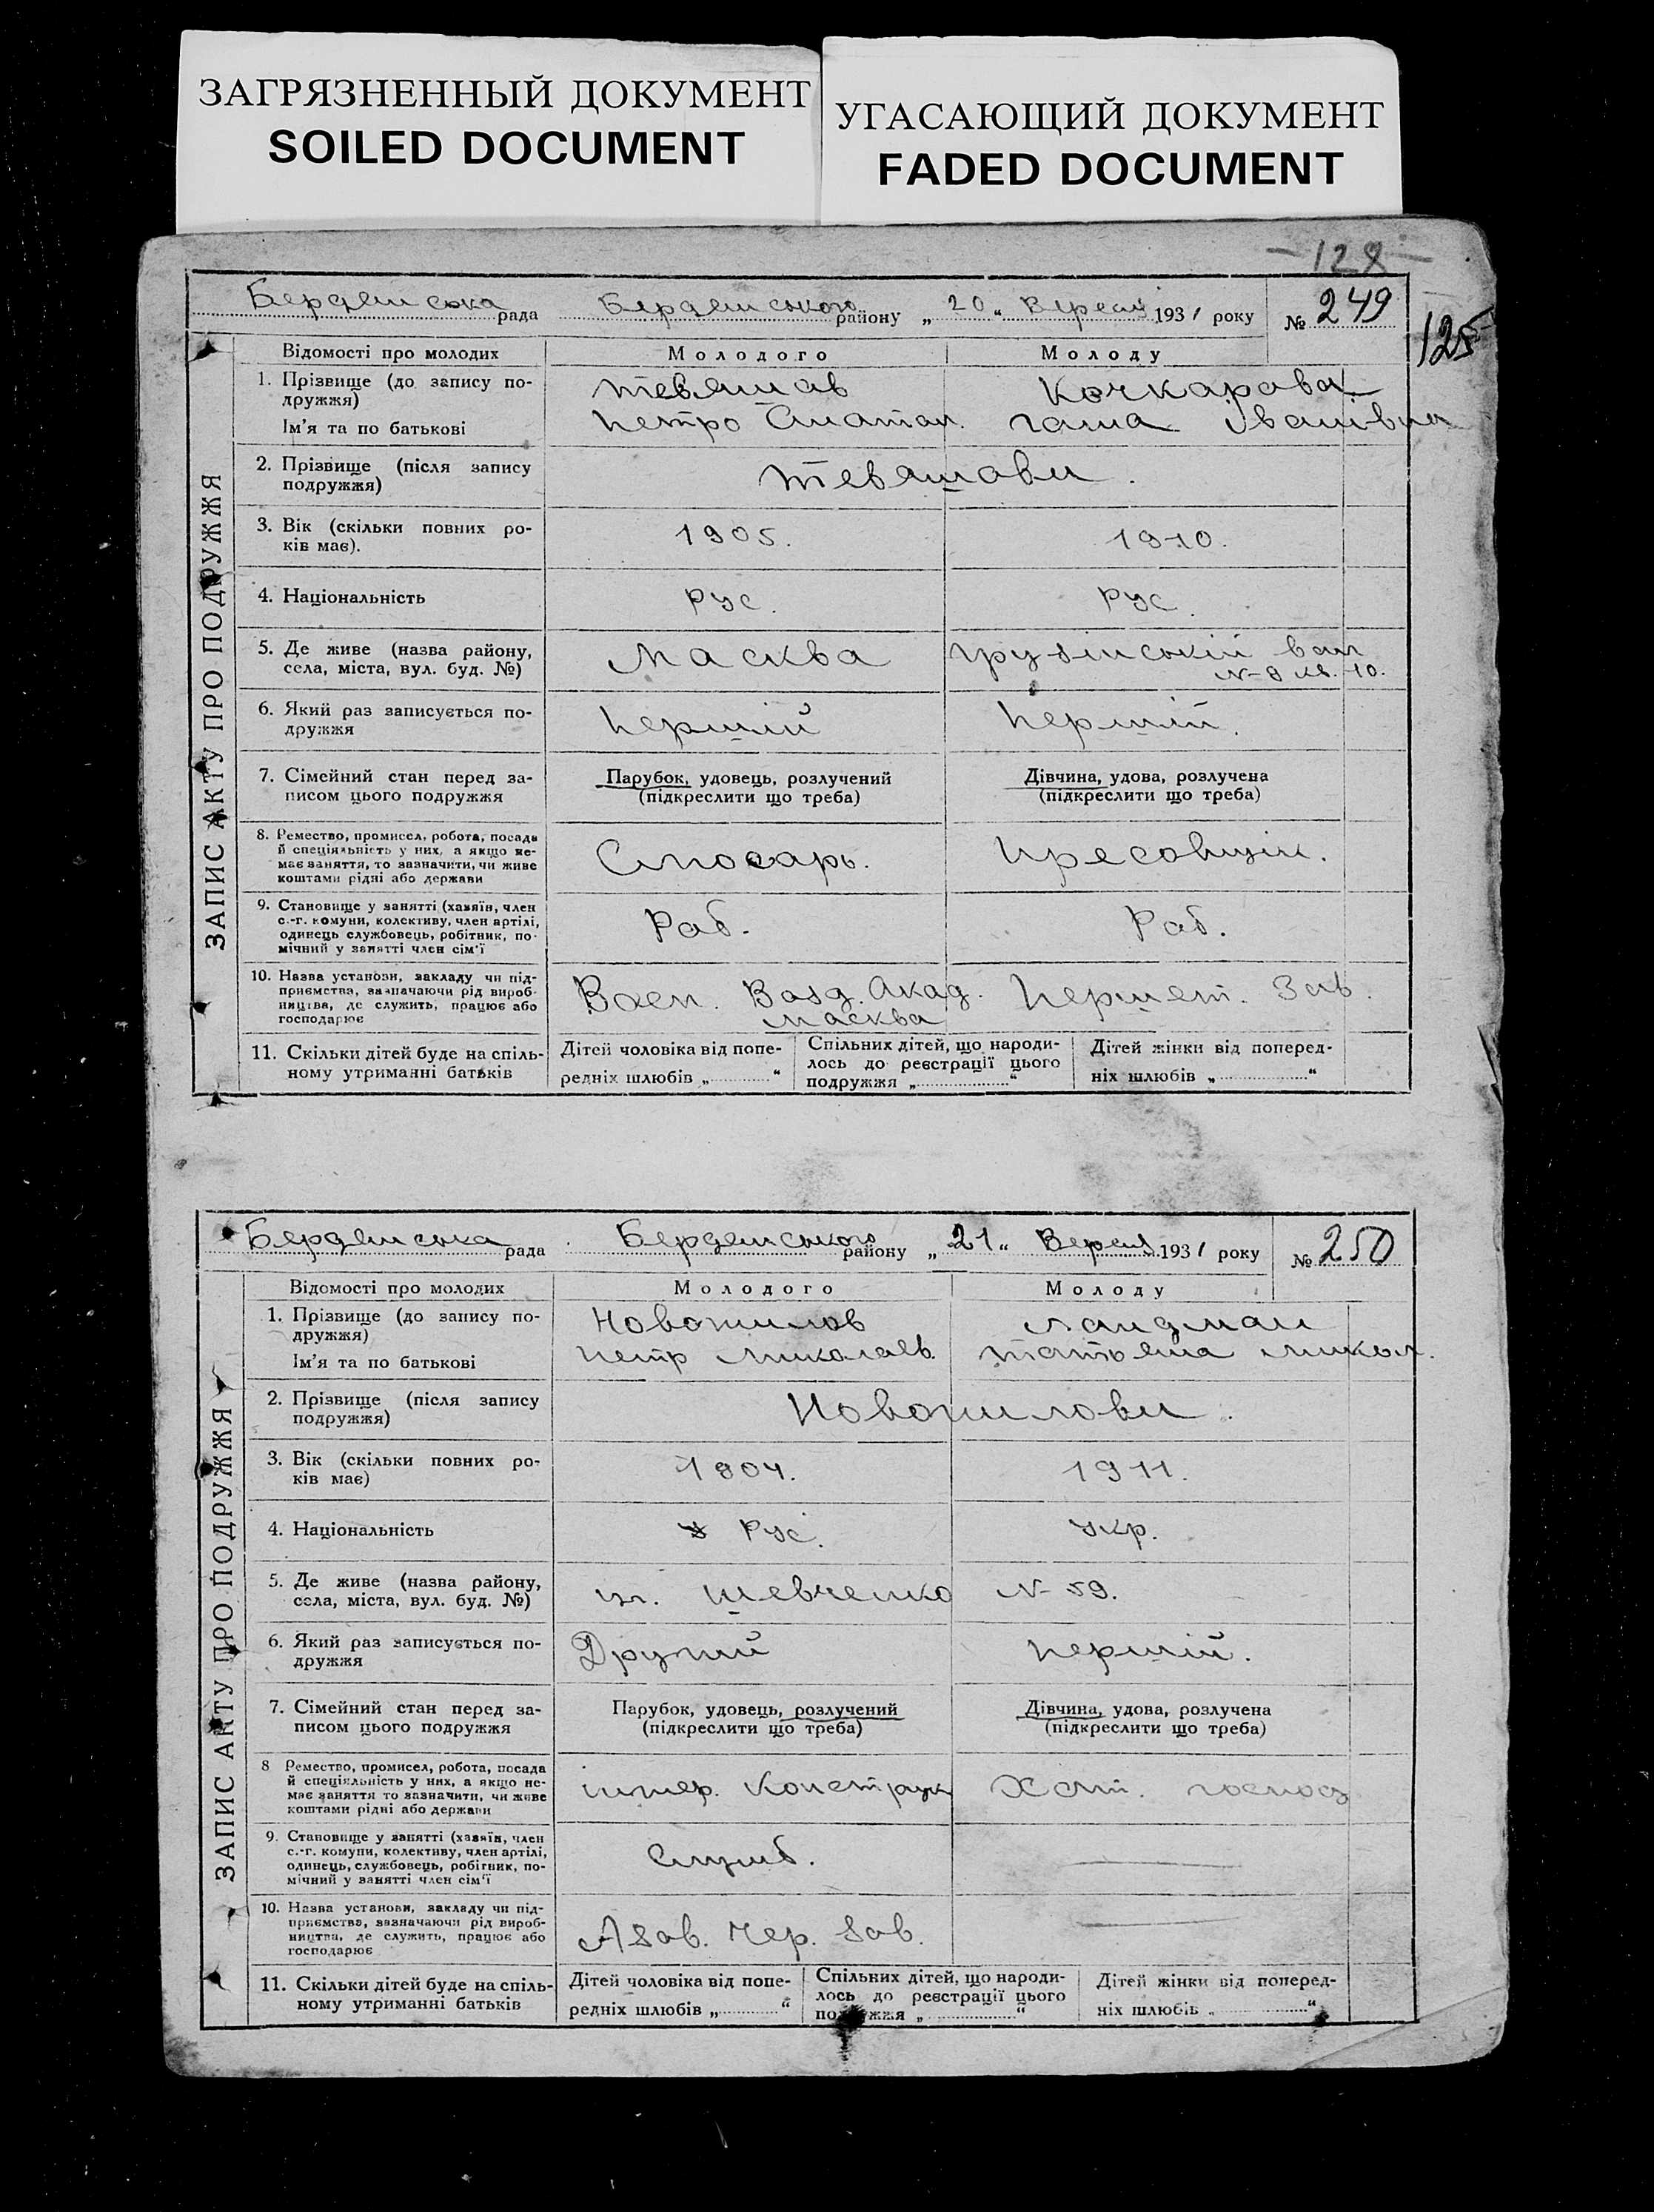 ЗАГРЯЗНЕННЫЙ ДОКУМЕНТ
SOILED DOCUMENT
УГАСАЮЩИЙ ДОКУМЕНТ
FADED DOCUMENT
128
125
Бердянська рада Бердянського району „20“ Вересня 1931 року № 249
ЗАПИС АКТУ ПРО ПОДРУЖЖЯ
Відомості про молодих Молодого Молоду
1. Прізвище (до запису по-
дружжя) Тевяшов Кочкарова
Ім'я та по батькові Петро Анатол. Ганна Іванівна
2. Прізвище (після запису
подружжя) Тевяшови.
3. Вік (скільки повних ро-
ків має). 1905. 1910.
4. Національність Рус. Рус.
5. Де живе (назва району,
села, міста, вул. буд. №) Масква Грузінській вал
N-8 кв. 10.
6. Який раз записується по-
дружжя Першій Першій.
7. Сімейний стан перед за-
писом цього подружжя
Парубок, удовець, розлучений
(підкреслити що треба)
Дівчина, удова, розлучена
(підкреслити що треба)
8. Ремество, промисел, робота, посада
й спеціяльність у них, а якщо не-
має заняття, то зазначити, чи живе
коштами рідні або держави
Слюсарь. Пресовщік.
9. Становище у занятті (хазяїн, член
с.-г. комуни, колективу, член артілі,
одинець службовець, робітник, по-
мічний у занятті член сім'ї
Раб. Раб.
10. Назва установи, закладу чи під-
приємства, зазначаючи рід вироб-
ництва, де служить, працює або
господарює
Воен. Возд. Акад. Першет. Зав.
Масква
11. Скільки дітей буде на спіль-
ному утриманні батьків
Дітей чоловіка від попе-
редніх шлюбів „ “
Спільних дітей, що народи-
лось до реєстрації цього
подружжя „ “
Дітей жінки від поперед-
ніх шлюбів „ “
Бердянська рада Бердянського району „21“ Вереся 1931 року № 250
ЗАПИС АКТУ ПРО ПОДРУЖЖЯ
Відомості про молодих Молодого Молоду
1. Прізвище (до запису по-
дружжя) Новожилов Ландман
Ім'я та по батькові Петр Миколаєв. Татьяна Микол.
2. Прізвище (після запису
подружжя) Новожилови.
3. Вік (скільки повних ро-
ків має) 1904. 1911.
4. Національність Рус. Укр.
5. Де живе (назва району,
села, міста, вул. буд. №) Шевченко N-59.
6. Який раз записується по-
дружжя Другий Першій.
7. Сімейний стан перед за-
писом цього подружжя
Парубок, удовець, розлучений
(підкреслити що треба)
Дівчина, удова, розлучена
(підкреслити що треба)
8 Ремество, промисел, робота, посада
й спеціяльність у них, а якщо не-
має заняття то зазначити, чи живе
коштами рідні або держави
інжер. Конструк Хат. господ
9. Становище у занятті (хазяїн, член
с.-г. комуни, колективу, член артілі,
одинець, службовець, робітник, по-
мічний у занятті член сім'ї
Служб.
10. Назва установи, закладу чи під-
приємства, зазначаючи рід вироб-
ництва, де служить, працює або
господарює
Азов. Чер. Зав.
11. Скільки дітей буде на спіль-
ному утриманні батьків
Дітей чоловіка від попе-
редніх шлюбів „ “
Спільних дітей, що народи-
лось до реєстрації цього
подружжя „ “
Дітей жінки від поперед-
ніх шлюбів „ “